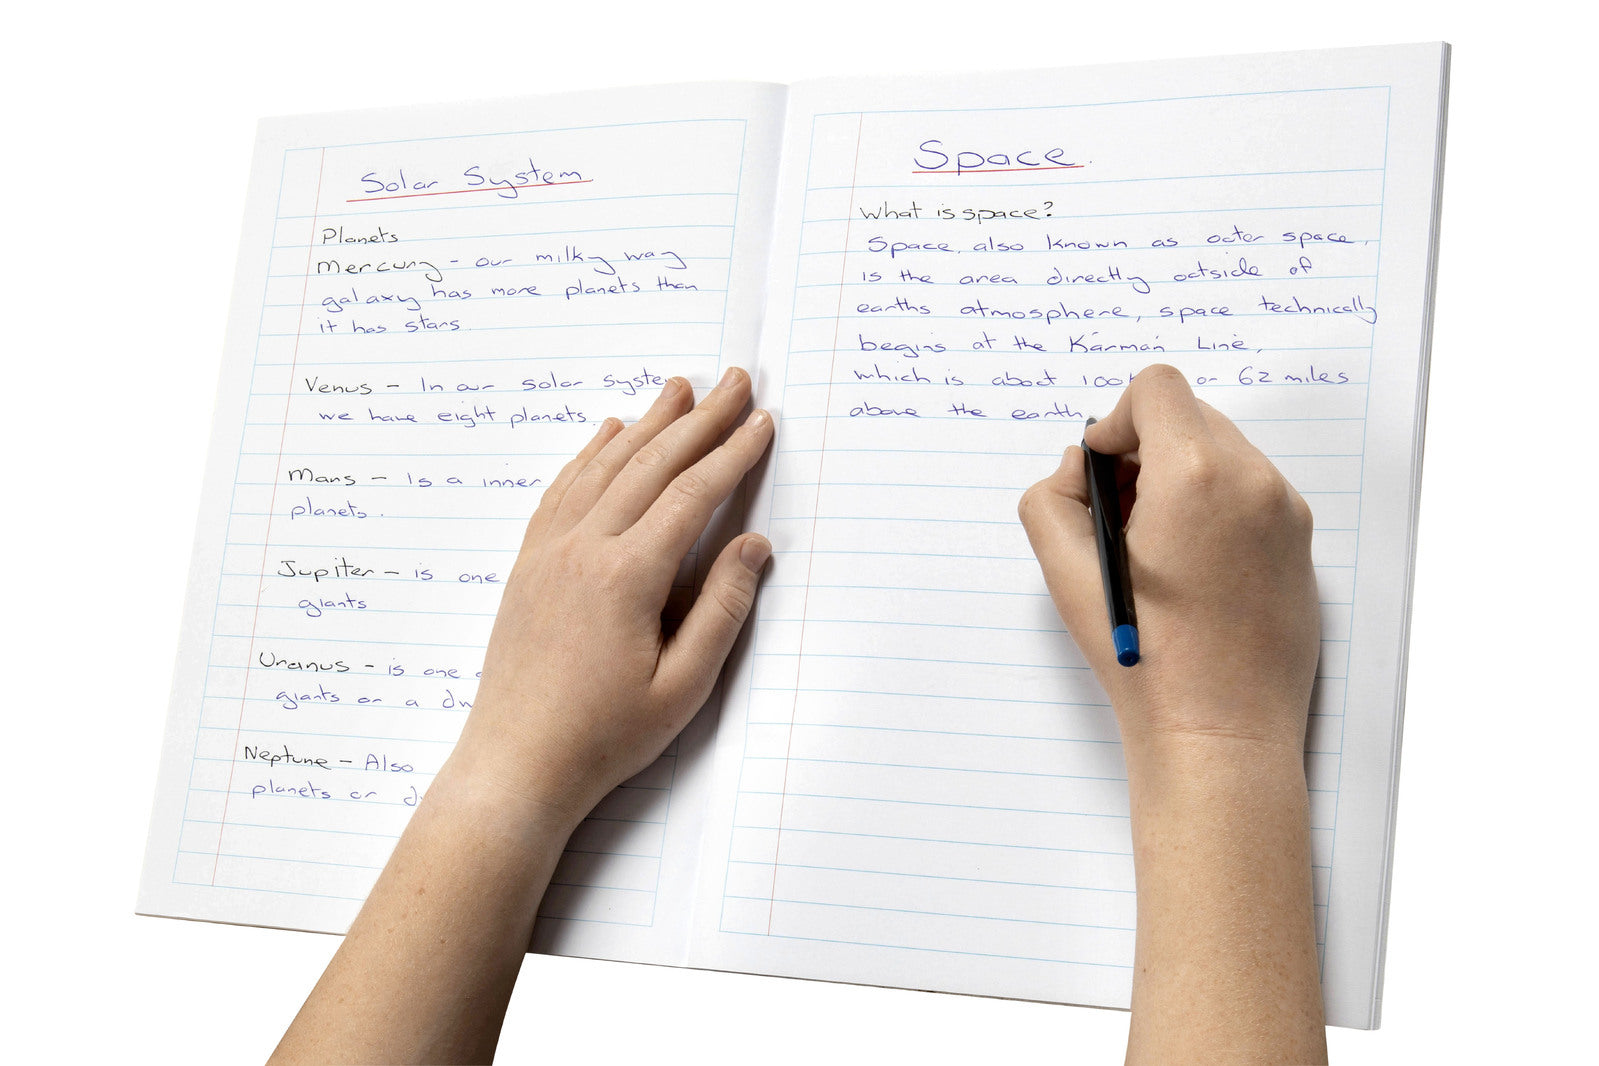 Solar System
Planets
Mercury - our milky way
galaxy has more planets than
it has stars.
Venus - In our solar syste
we have eight planets.
Mars - Is a inner
planets.
Jupiter - is one
giants
Uranus - is one
giants or a dw
Neptune - Also
planets or d
Space.
What is space?
Space, also known as outer space,
is the area directly outside of
earths atmosphere, space technically
begins at the Kármán Line,
which is about 100k or 62 miles
above the earth